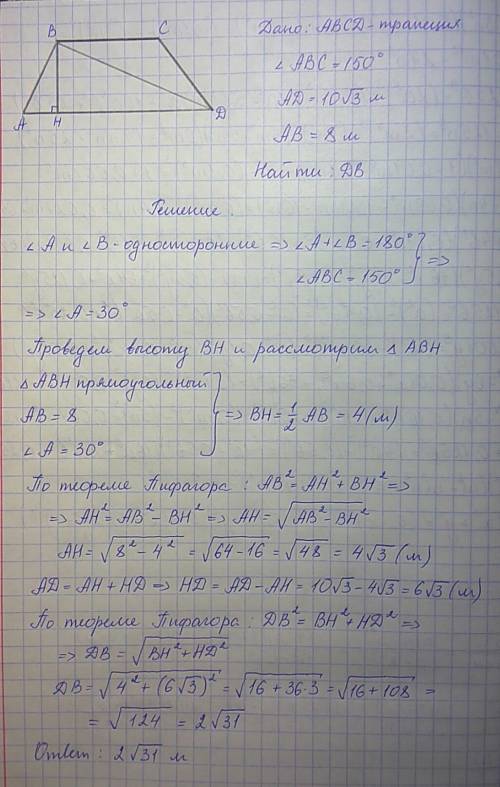 B
C
A
H
D
Дано: ABCD - трапеция
∠ABC = 150°
AD = 10√3 м
AB = 8 м
Найти: DB
Решение.
∠A и ∠B - односторонние => ∠A + ∠B = 180°
∠ABC = 150° } =>
=> ∠A = 30°
Проведем высоту BH и рассмотрим △ ABH
△ ABH прямоугольный
AB = 8 } => BH = 1/2 AB = 4 (м)
∠A = 30°
По теореме Пифагора: AB² = AH² + BH² =>
=> AH² = AB² - BH² => AH = √(AB² - BH²)
AH = √(8² - 4²) = √(64 - 16) = √48 = 4√3 (м)
AD = AH + HD => HD = AD - AH = 10√3 - 4√3 = 6√3 (м)
По теореме Пифагора: DB² = BH² + HD² =>
=> DB = √(BH² + HD²)
DB = √(4² + (6√3)²) = √(16 + 36·3) = √(16 + 108) =
= √124 = 2√31
Ответ: 2√31 м